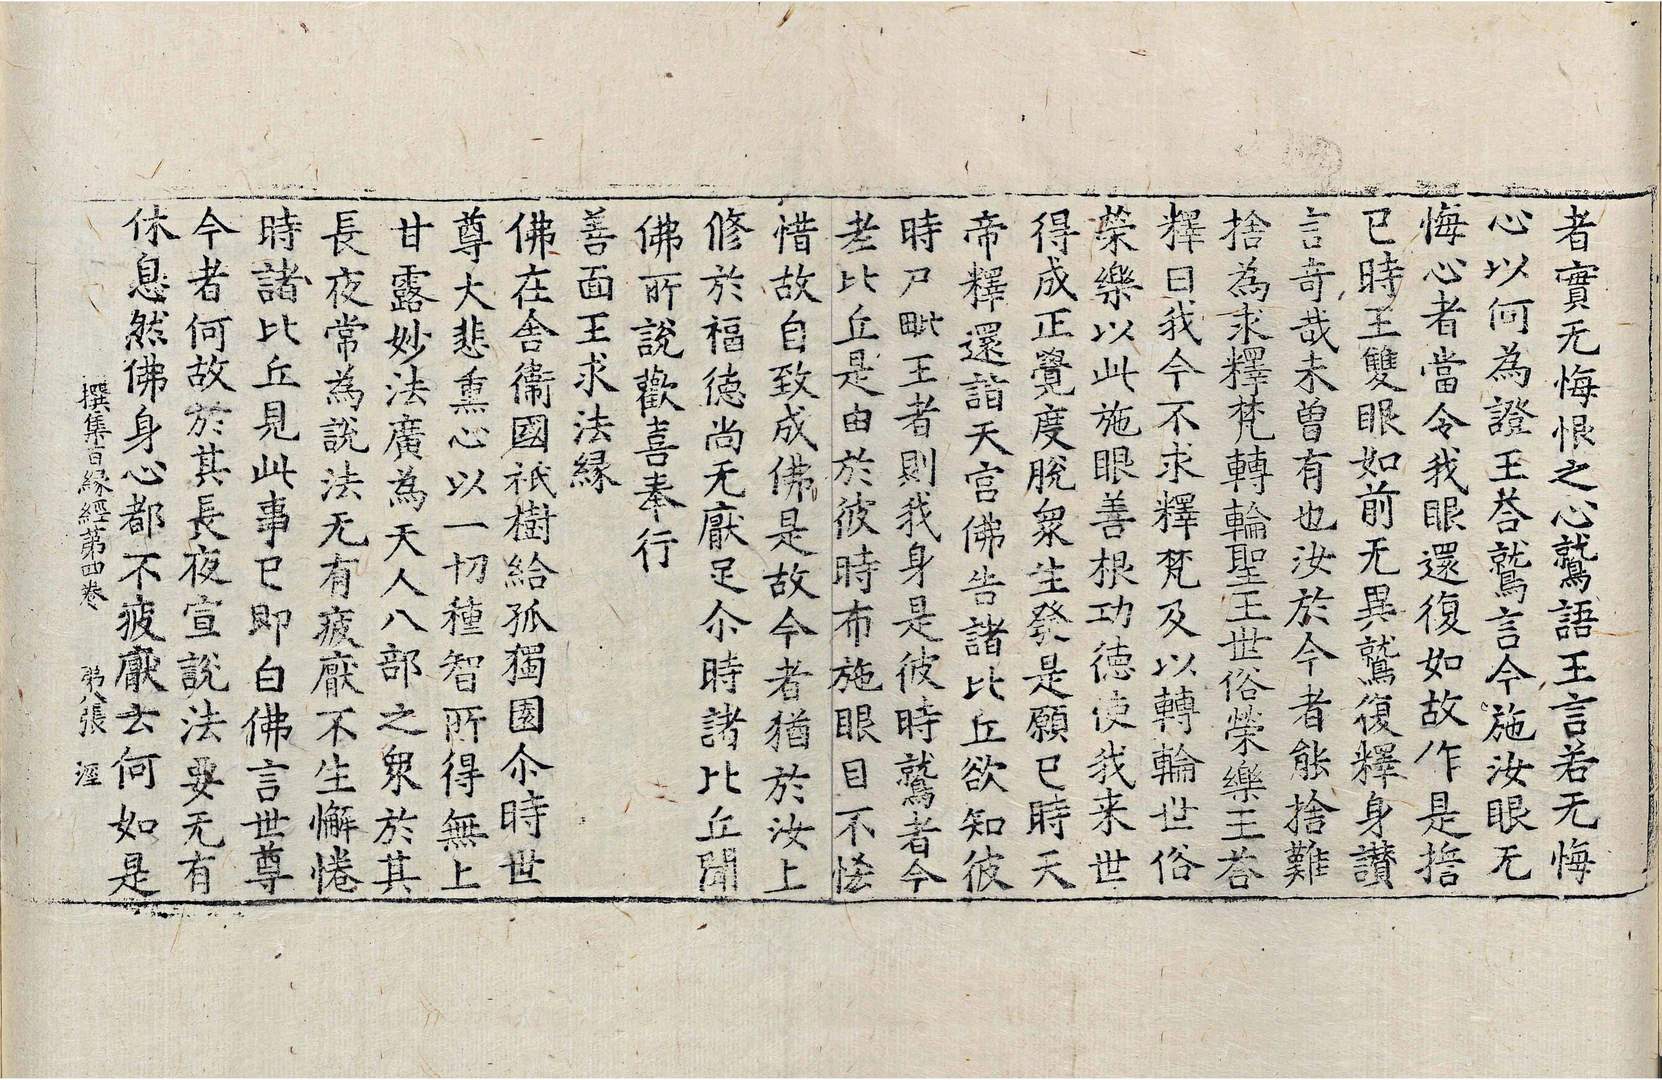 者實无悔恨之心鷲語王言若无悔
心以何為證王荅鷲言今施汝眼无
悔心者當令我眼還復如故作是擔
已時王雙眼如前无異鷲復釋身讃
言奇哉未曾有也汝於今者能捨難
捨為求釋梵轉輪聖王世俗榮樂王荅
釋曰我今不求釋梵及以轉輪世俗
榮樂以此施眼善根功德使我来世
得成正覺度脫衆生發是願已時天
帝釋還詣天宮佛告諸比丘欲知彼
時尸毗王者則我身是彼時鷲者今
老比丘是由於彼時布施眼目不恡
惜故自致成佛是故今者猶於汝上
修於福德尚无厭足尒時諸比丘聞
佛所說歡喜奉行
善面王求法縁
佛在舍衞國祇樹給孤獨園尒時世
尊大悲熏心以一切種智所得無上
甘露妙法廣為天人八部之衆於其
長夜常為說法无有疲厭不生懈惓
時諸比丘見此事已即白佛言世尊
今者何故於其長夜宣說法要无有
休息然佛身心都不疲厭云何如是
撰集百縁經第四卷 第八張 涇